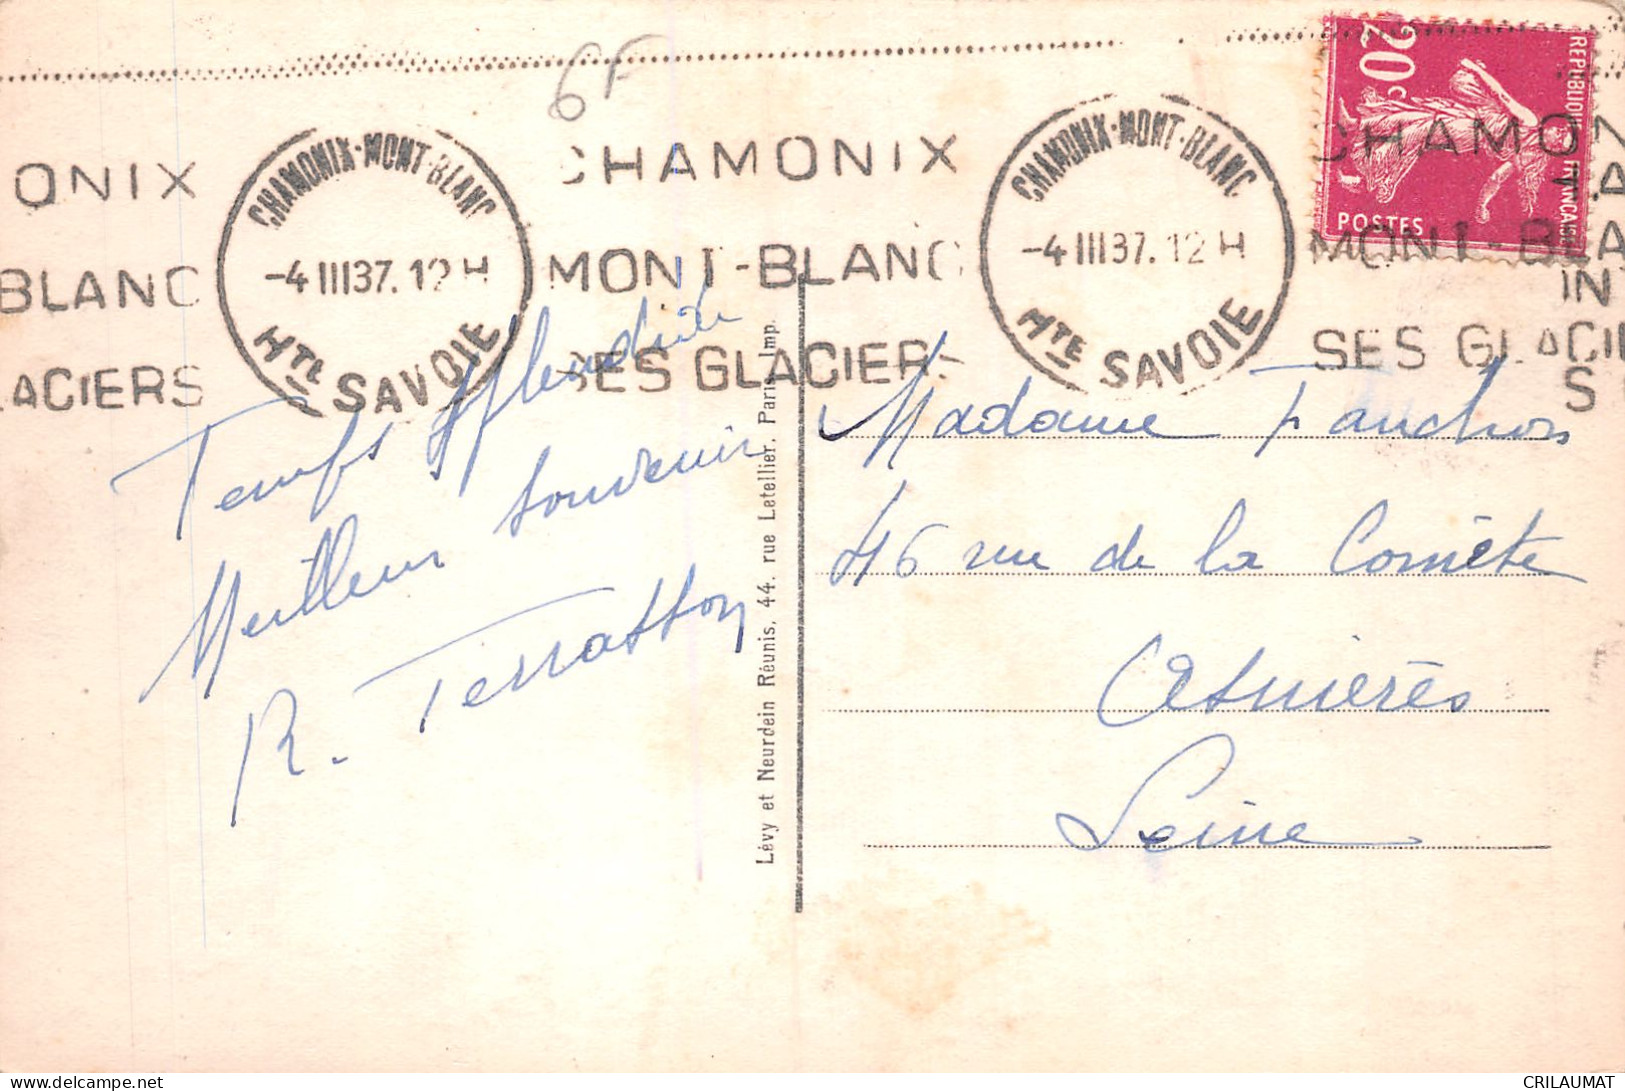 6F
ONIX
BLANC
LACIERS
CHAMONIX-MONT-BLANC
-4 III 37. 12 H
HTE SAVOIE
CHAMONIX
MONT-BLANC
SES GLACIERS
CHAMONIX-MONT-BLANC
-4 III 37. 12 H
HTE SAVOIE
CHAMON
MONT-BLA
SES GLACI
IN
S
20c
REPUBLIQUE FRANÇAISE
POSTES
Temps splendide
Meilleur souvenir
R. Terratton
Lévy et Neurdein Réunis, 44, rue Letellier, Paris Imp.
Madame Fanchon
46 rue de la Comète
Asnières
Seine
delcampe.net
CRILAUMAT